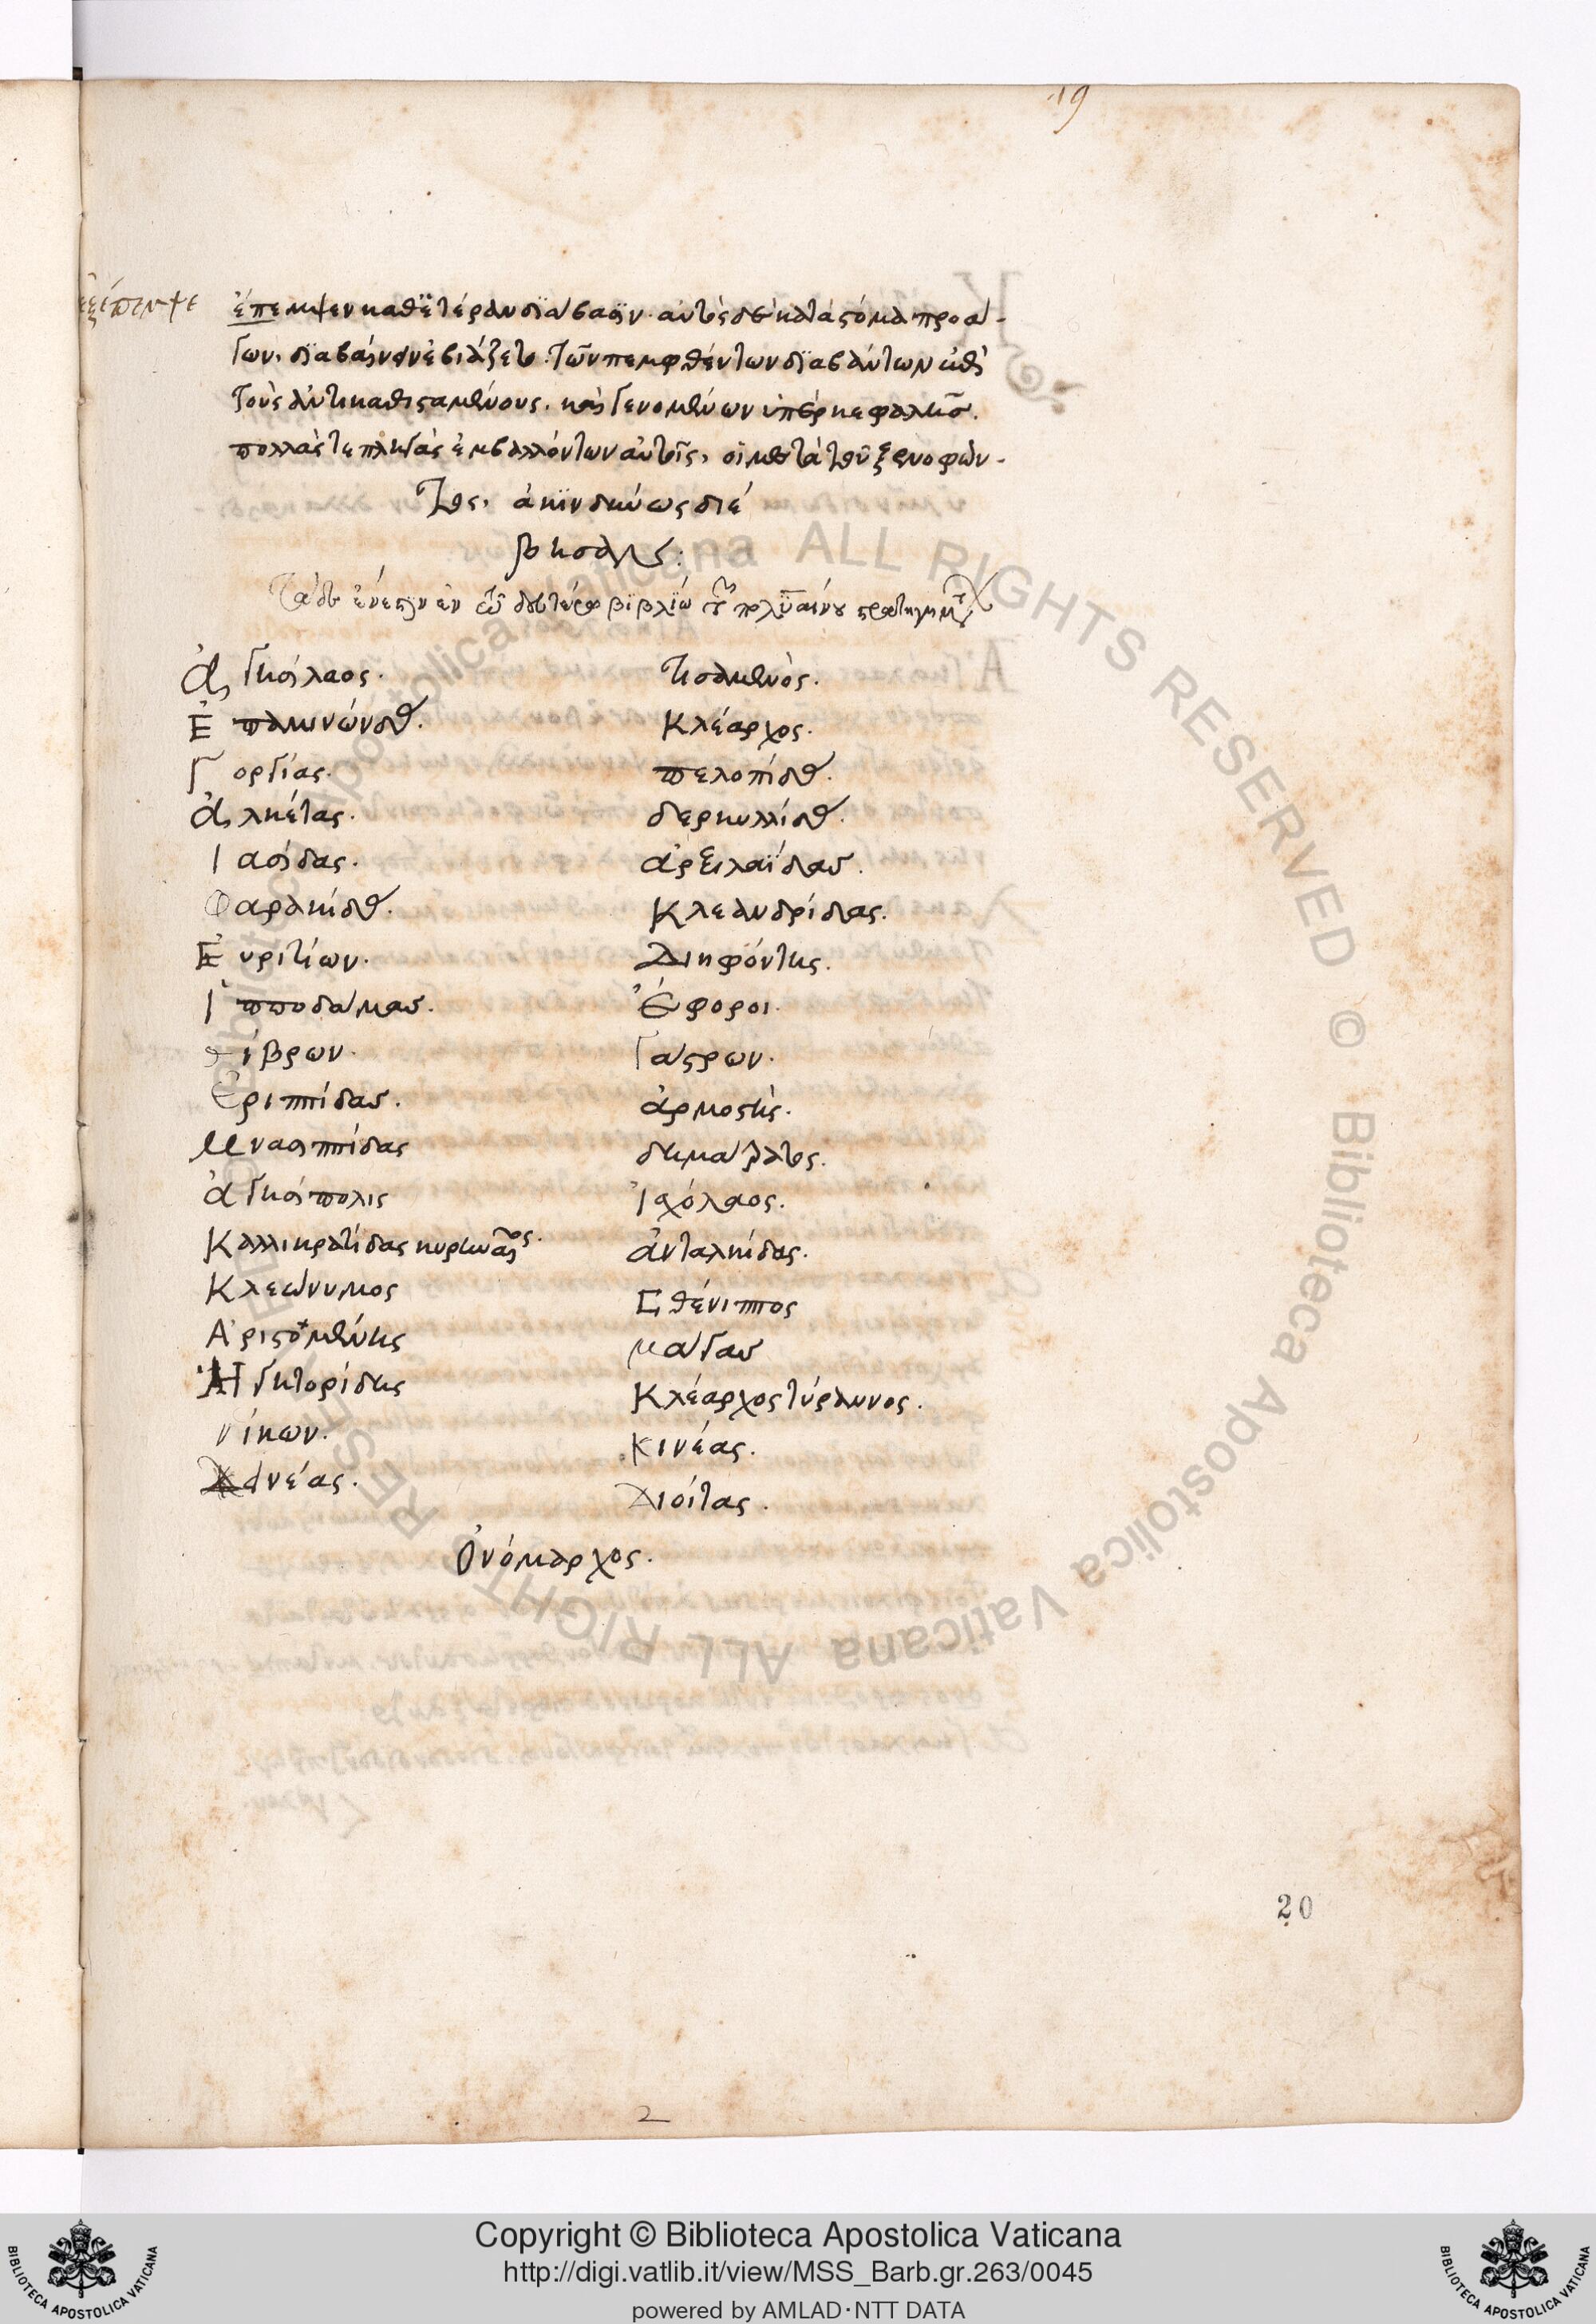 19
ἐξέπεμψε
ἔπεμψεν καθ' ἑτέραν διάβασιν. αὐτὸς δὲ κατὰ στόμα προά-
γων, διαβαίνειν ἐβιάζετο. τῶν πεμφθέντων διαβάντων ἐπὶ
τοὺς ἀντικαθισταμένους, καὶ γενομένων ὑπὲρ κεφαλῆς.
πολλάς τε πληγὰς ἐμβαλλόντων αὐτοῖς, οἱ μετὰ τοῦ ξενοφῶν-
τος, ἀκινδύνως διέ
βησαν:
Τάδε ἔνεστιν ἐν τῷ δευτέρῳ βιβλίῳ τοῦ πολυαίνου στρατηγημάτων
Ἀγησίλαος.
Ἐπαμινώνδας.
Γοργίας.
Ἀλκέτας.
Ἰασίδας.
Φαρακίδας.
Εὐριτίων.
Ἱπποδάμας.
θίβρων.
Ἐριππίδας.
Μνασιππίδας
ἀγησίπολις
Καλλικρατίδας κυρηναῖος.
Κλεώνυμος
Ἀριστομένης
Ἡγητορίδης
νίκων.
Αἰνέας.
τισαμενός.
Κλέαρχος.
πελοπίδας.
δερκυλλίδας.
ἀρξιλαΐδας.
Κλεανδρίδας.
Διηφόντης.
Ἔφοροι.
Γάστρων.
ἁρμοστής.
δημάρατος.
Ἰσχόλαος.
ἀνταλκίδας.
Σθένιππος
μάγας
Κλέαρχος τύραννος.
κινέας.
Διοίτας.
Ὀνόμαρχος.
20
2
Copyright © Biblioteca Apostolica Vaticana
http://digi.vatlib.it/view/MSS_Barb.gr.263/0045
powered by AMLAD·NTT DATA
BIBLIOTECA APOSTOLICA VATICANA
BIBLIOTECA APOSTOLICA VATICANA
Biblioteca Apostolica Vaticana ALL RIGHTS RESERVED ©
Biblioteca Apostolica Vaticana ALL RIGHTS RESERVED ©